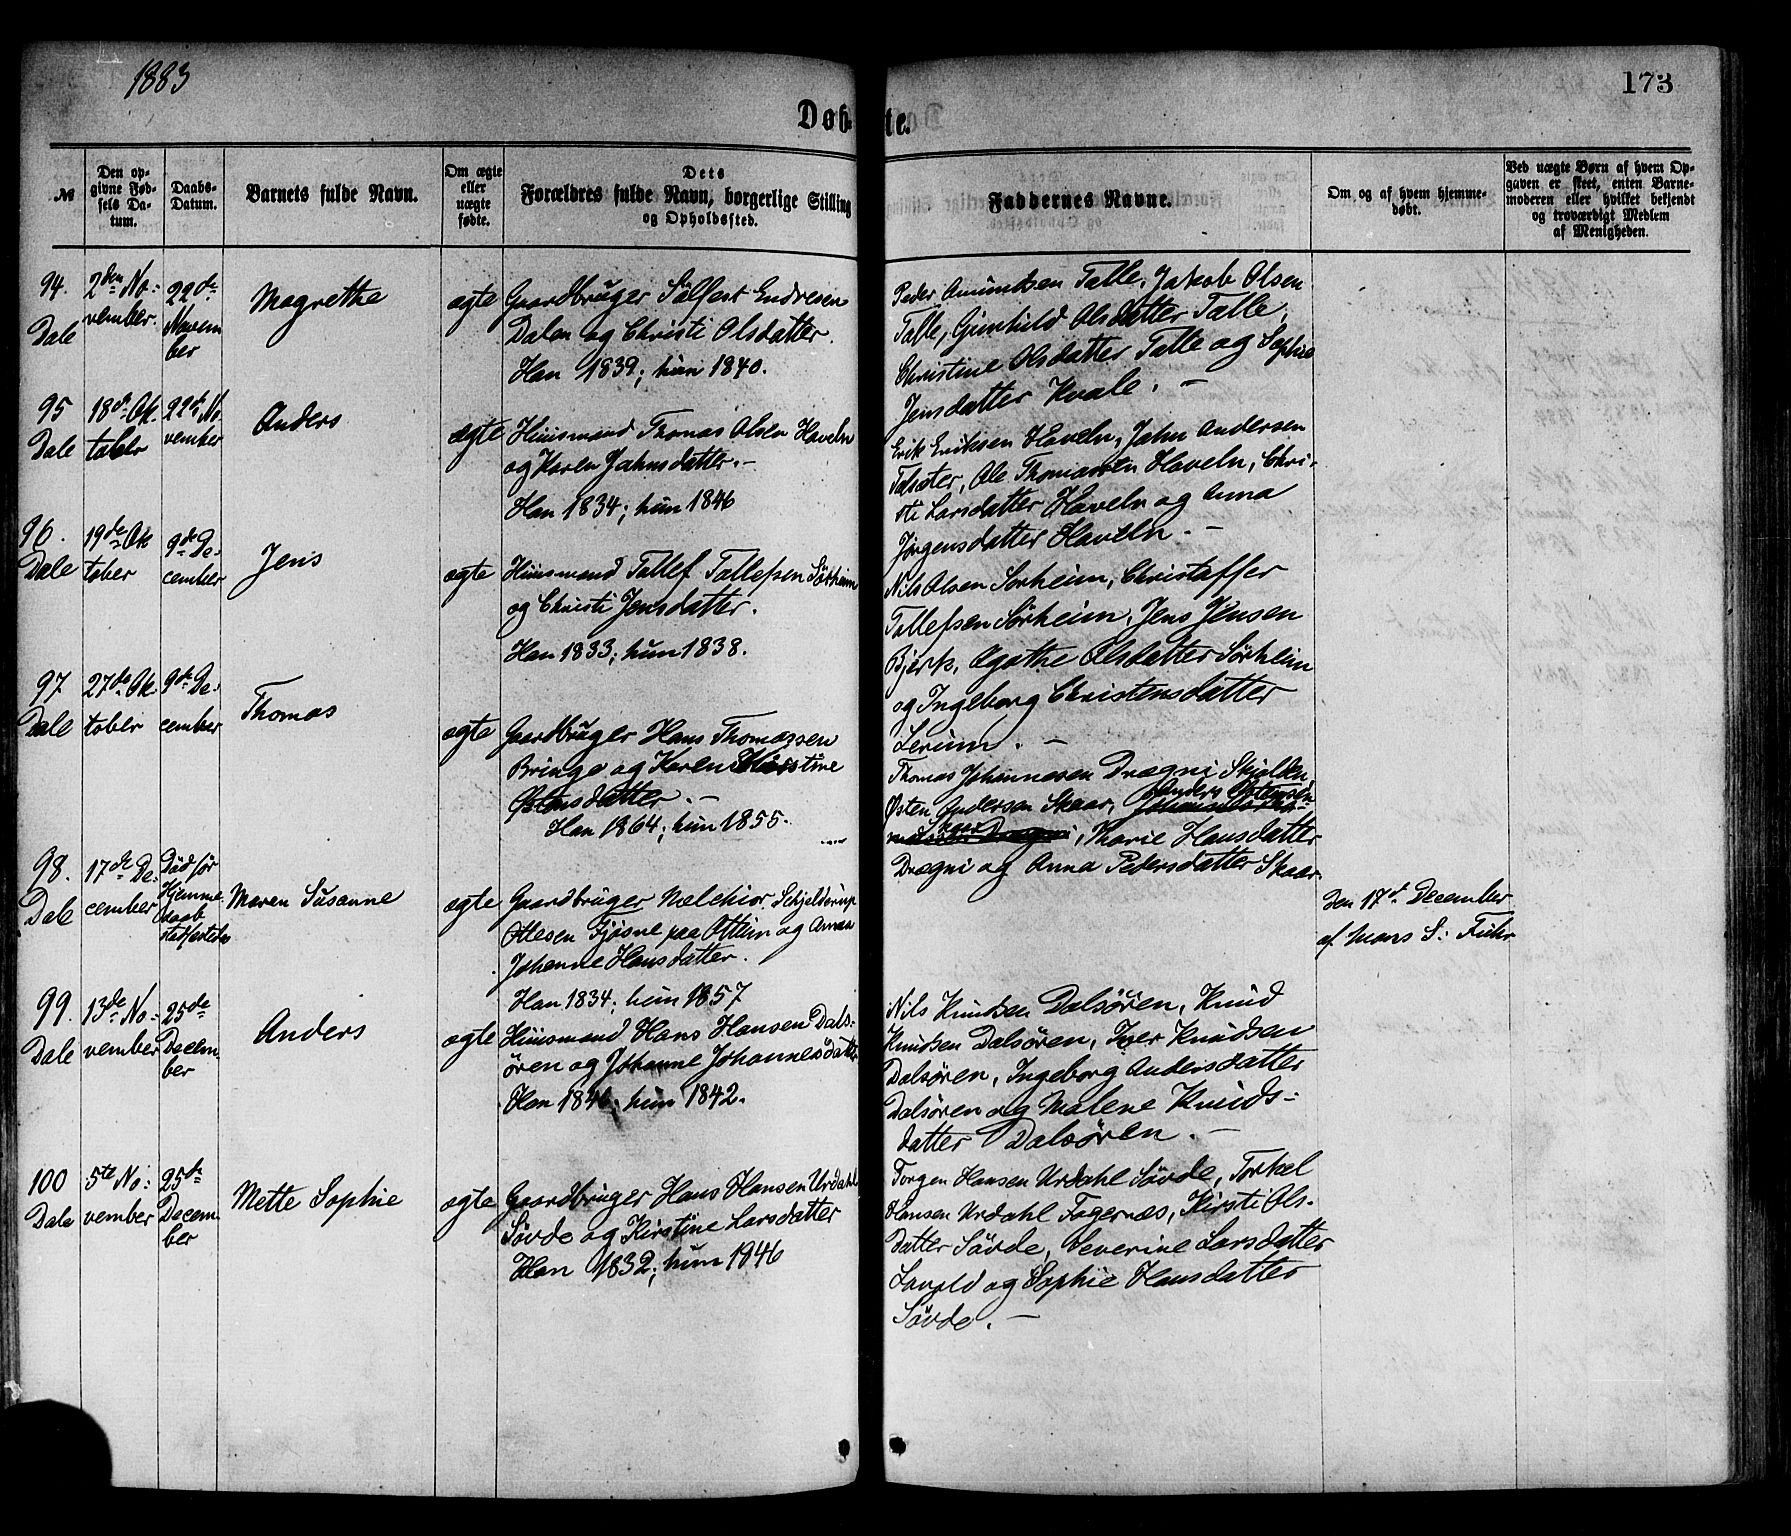 1883
173
Døb-te.
№
Den opgivne Fødsels Datum.
Daabs-Datum.
Barnets fulde Navn.
Om ægte eller uægte fødte.
Dets Forældres fulde Navn, borgerlige Stilling og Opholdssted.
Faddernes Navne.
Om og af hvem hjemmedøbt.
Ved uægte Børn af hvem Opgaven er skeet, enten Barnemoderen eller hvilket bekjendt og troværdigt Medlem af Menigheden.
94.
Dale
2den No:
vember.
22de
Novem
ber
Magrethe
ægte
Gaardbruger Sålfest Endresen
Dalen og Christi Olsdatter.
Han 1839; hun 1840.
Peder Amundsen Talle, Jakob Olsen
Talle, Gunhild Olsdatter Talle,
Christine Olsdatter Talle og Sophie
Jensdatter Kvale. —
95
Dale
18de Ok
tober
22de No
vember
Anders
ægte
Huusmand Thomas Olsen Haveln
og Karen Jahnsdatter. —
Han 1834; hun 1846
Erik Eriksen Haveln, Jahn Andersen
Talsæter, Ole Thomassen Haveln, Chri-
sti Larsdatter Haveln og Anna
Jørgensdatter Haveln. —
96.
Dale
19de Ok
tober
9de De-
cember
Jens
ægte
Huusmand Tollef Tollefsen Sørheim
og Christi Jensdatter.
Han 1833; hun 1838.
Nils Olsen Sørheim, Christaffer
Tollefsen Sørheim, Jens Jensen
Bjerk, Agathe Olsdatter Sørheim
og Ingeborg Christensdatter
Lerum. —
97
Dale
27de Ok
tober
9de De-
cember
Thomas
ægte
Gaardbruger Hans Thomassen
Bringe og Karen Kirstine
Østensdatter. —
Han 1864; hun 1855.
Thomas Johannesen Drægni Skjolden,
Østen Andersen Skaar, Anders Østensen
Skaar, Marie Hansdatter
Drægni og Anna Pedersdatter Skaar.
98.
Dale
17de De-
cember
Død før
Hjemme
daab
stadfæstedes
Maren Susanne
ægte
Gaardbruger Melchior Schjelderup
Ottesen Fjøsne paa Ottum og Anna
Johanne Hansdatter.
Han 1834; hun 1857
Den 17de December
af Mons S: Fuhr
99.
Dale
13de No-
vember
25de
Decem-
ber
Anders
ægte
Huusmand Hans Hansen Dals-
ören og Johanne Johannesdatter
Han 1846; hun 1842.
Nils Knudsen Dalsören, Knud
Knudsen Dalsören, Iver Knudsen
Dalsören, Ingeborg Andersdatter
Dalsören og Malene Knuds-
datter Dalsören. —
100
Dale
5te No:
vember
25de
Decem-
ber
Mette Sophie
ægte
Gaardbruger Hans Hansen Urdahl
Søvde og Kirstine Larsdatter
Han 1832; hun 1846
Torgen Hansen Urdahl Søvde, Torkel
Hansen Urdahl Fagernæs, Kirsti Ols-
datter Søvde, Severine Larsdatter
Lavold og Sophie Hansdatter
Søvde. —